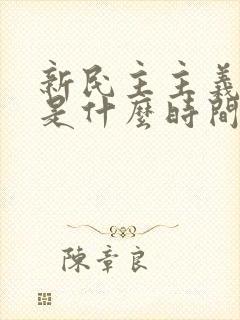 新民主主義
是什麼時間
陳章良